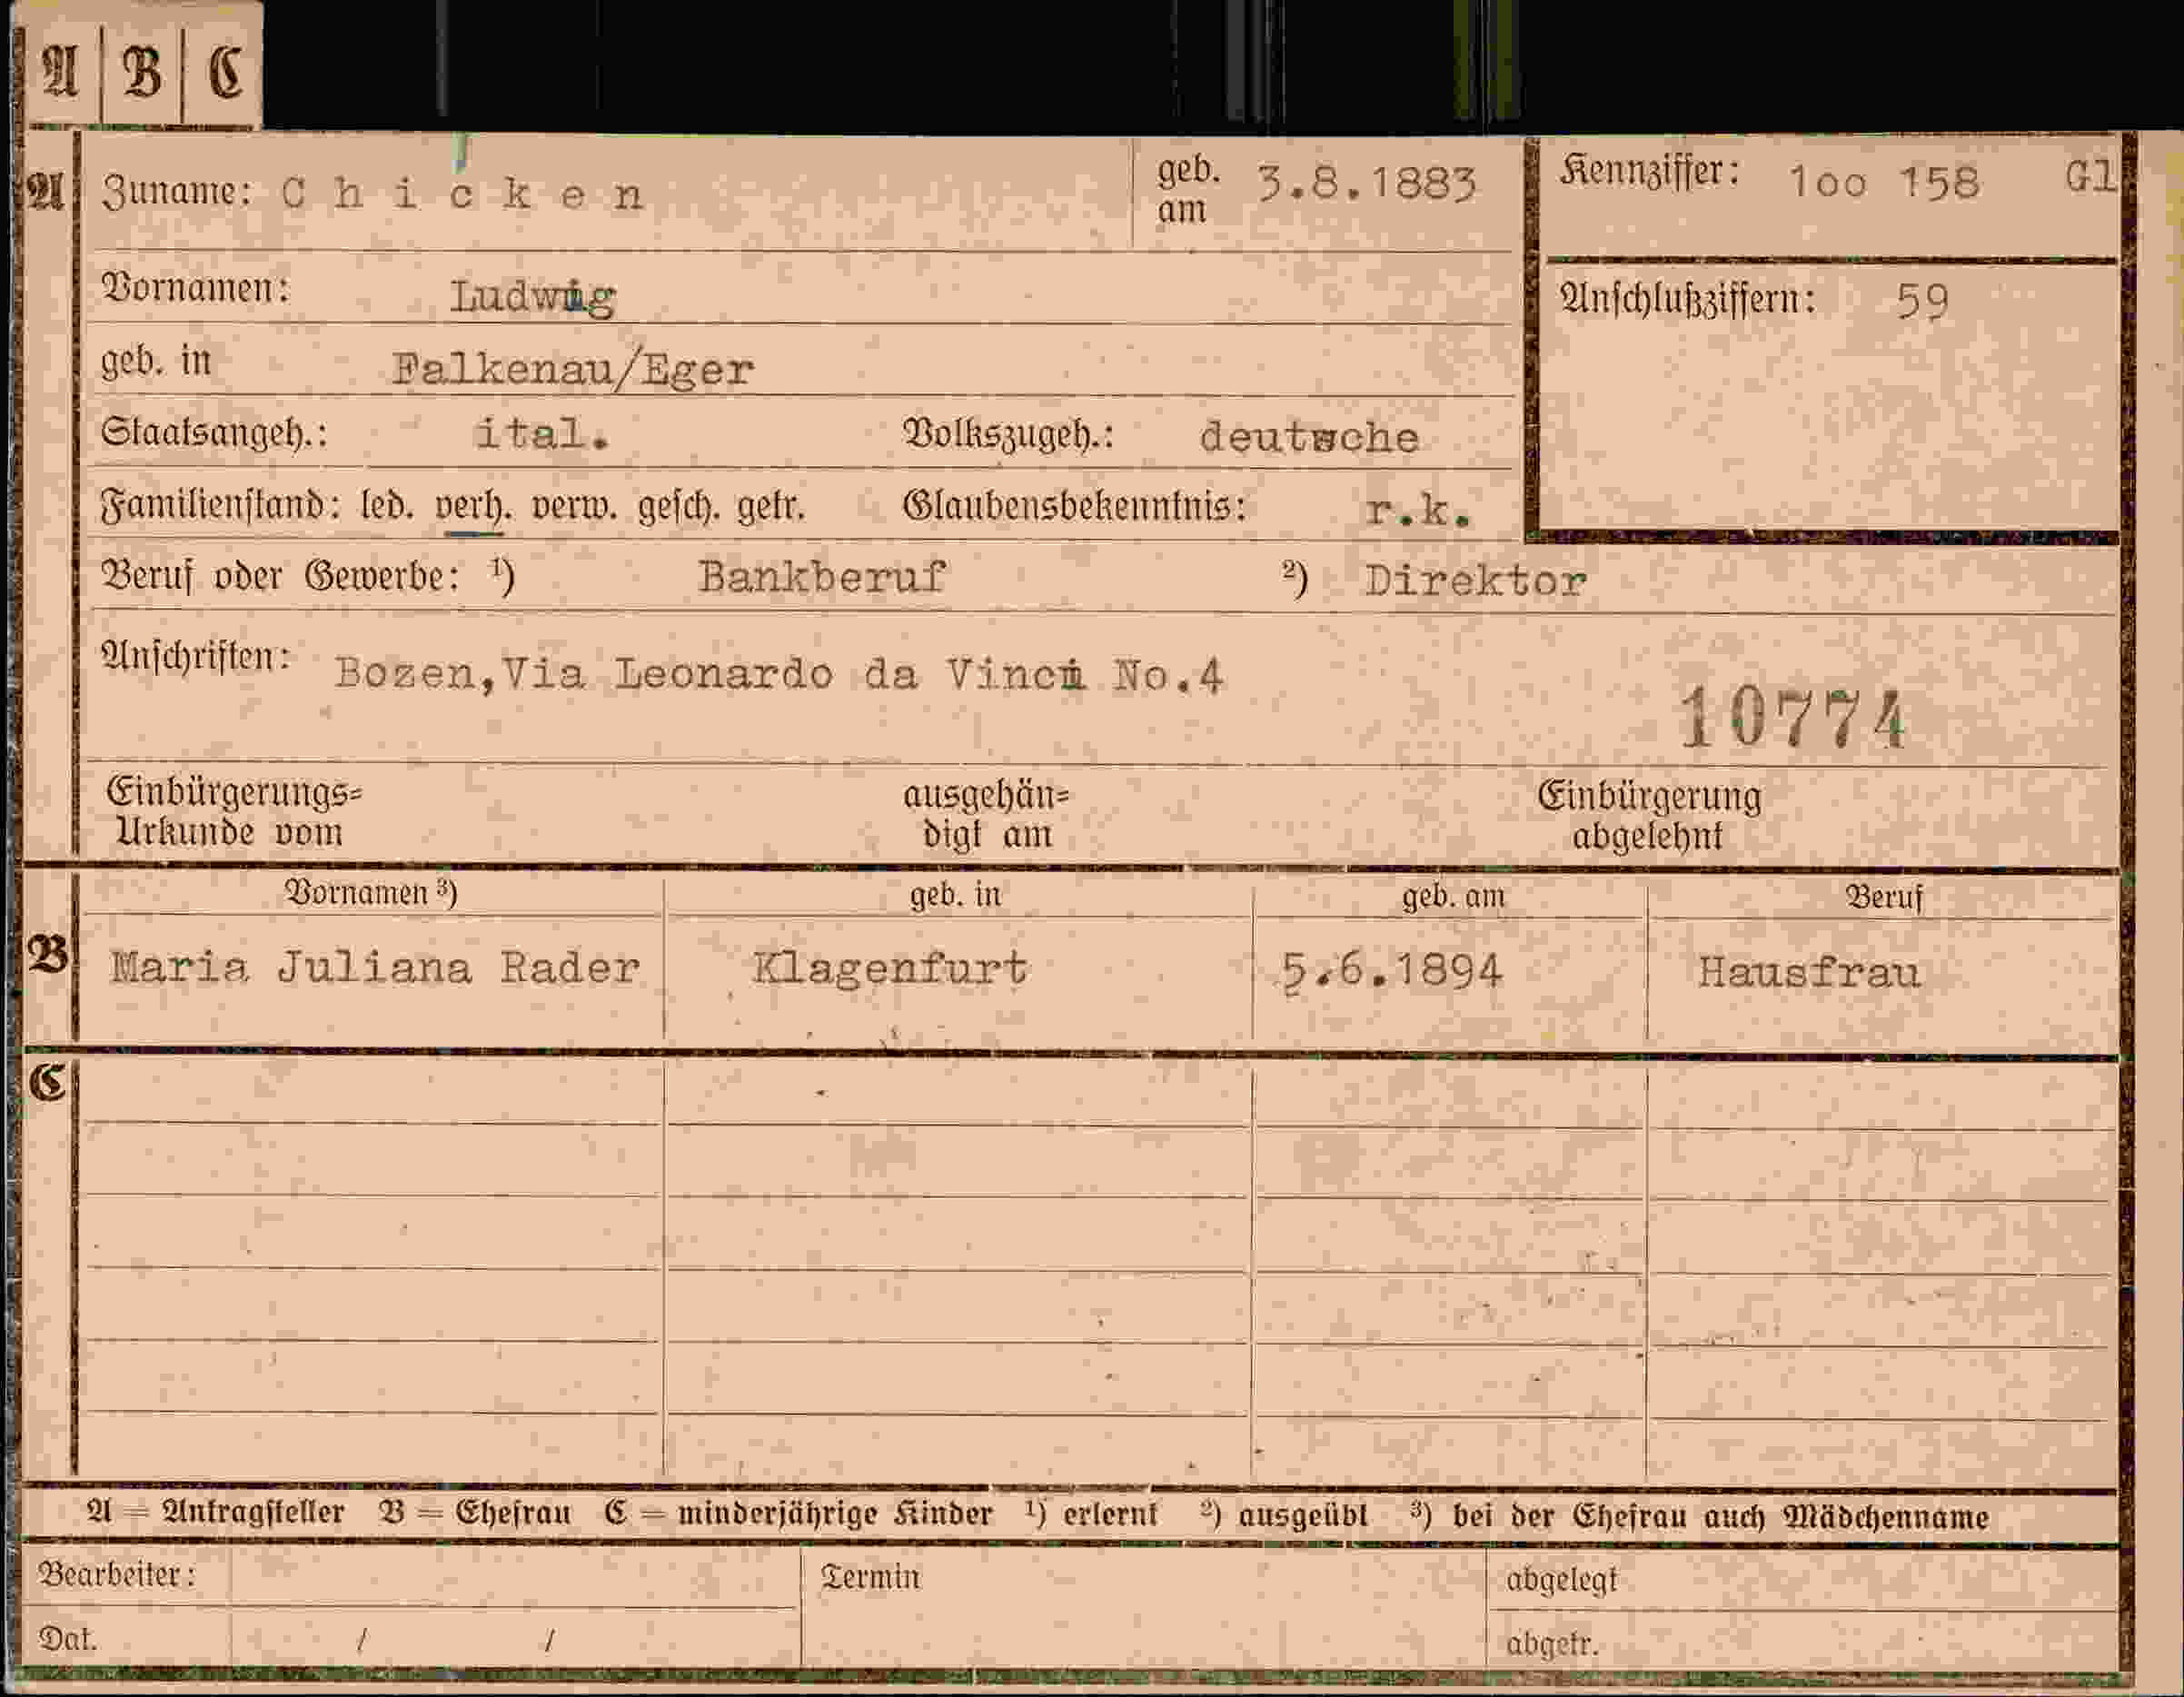 A B C
A Zuname: Chicken geb. am 3.8.1883 Kennziffer: 1oo 158 Gl
Vornamen: Ludwig Anschlußziffern: 59
geb. in Falkenau/Eger
Staatsangeh.: ital. Volkszugeh.: deutsche
Familienstand: led. verh. verw. gesch. getr. Glaubensbekenntnis: r.k.
Beruf oder Gewerbe: ¹) Bankberuf ²) Direktor
Anschriften: Bozen,Via Leonardo da Vinci No.4
10774
Einbürgerungs= ausgehän= Einbürgerung
Urkunde vom digt am abgelehnt
Vornamen ³) geb. in geb. am Beruf
B Maria Juliana Rader Klagenfurt 5.6.1894 Hausfrau
C
A = Antragsteller B = Ehefrau C = minderjährige Kinder ¹) erlernt ²) ausgeübt ³) bei der Ehefrau auch Mädchenname
Bearbeiter: Termin abgelegt
Dat. / / abgetr.